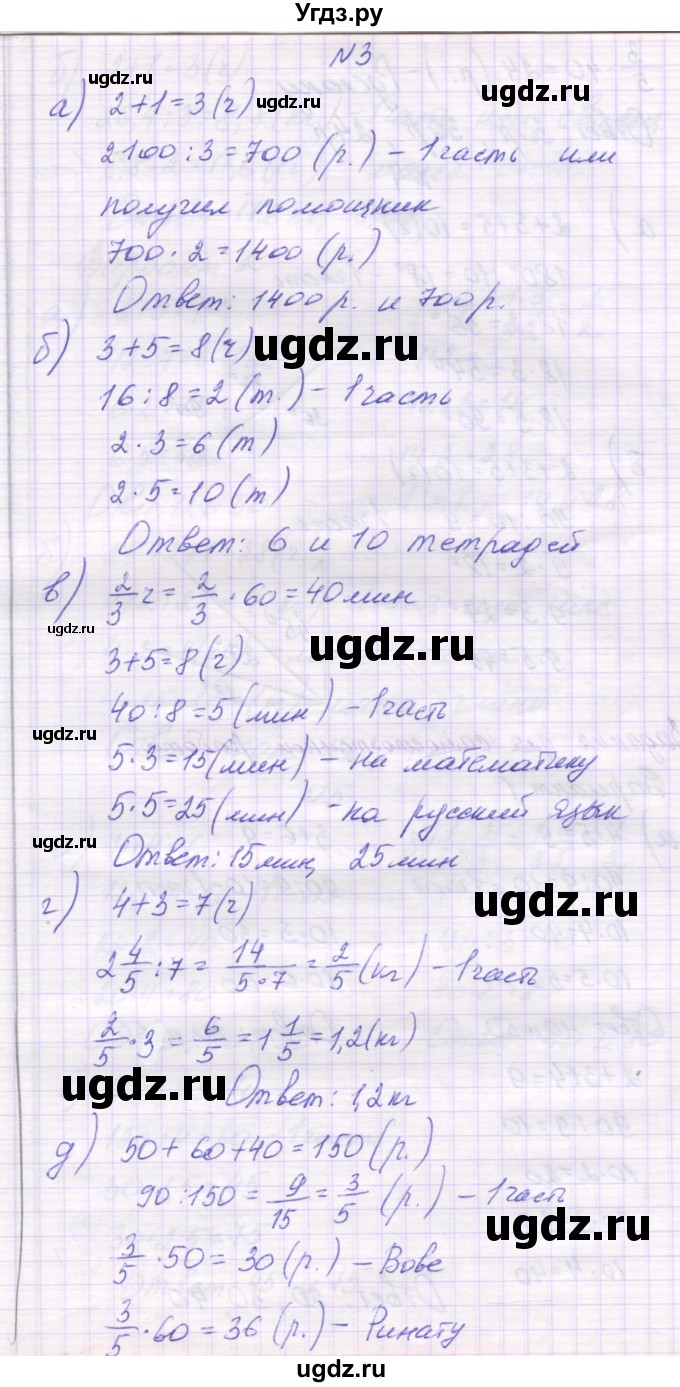 Угдз.ру
N3
ugdz.ru
а) 2+1=3(ч) ugdz.ru
2100:3=700 (р.) – 1часть или
получил помощник
700·2=1400 (р.)
Ответ: 1400р. и 700р.
б) 3+5=8(ч) ugdz.ru
16:8=2 (т.) – 1часть
2·3=6 (т)
2·5=10 (т)
Ответ: 6 и 10 тетрадей
в) 2/3 ч = 2/3 · 60 = 40мин
ugdz.ru
3+5=8(ч) ugdz.ru
40:8=5 (мин) – 1часть
ugdz.ru
5·3=15(мин) – на математику
5·5=25 (мин) – на русский язык
ugdz.ru
Ответ: 15мин, 25мин
г) 4+3=7(ч)
2 4/5 : 7 = 14/(5·7) = 2/5 (кг) – 1часть
2/5 · 3 = 6/5 = 1 1/5 = 1,2(кг)
ugdz.ru
Ответ: 1,2кг
д) 50+60+40=150 (р.)
90:150 = 9/15 = 3/5 (р.) – 1часть
ugdz.ru
3/5 · 50 = 30 (р.) – Вове
3/5 · 60 = 36 (р.) – Ринату
ugdz.ru